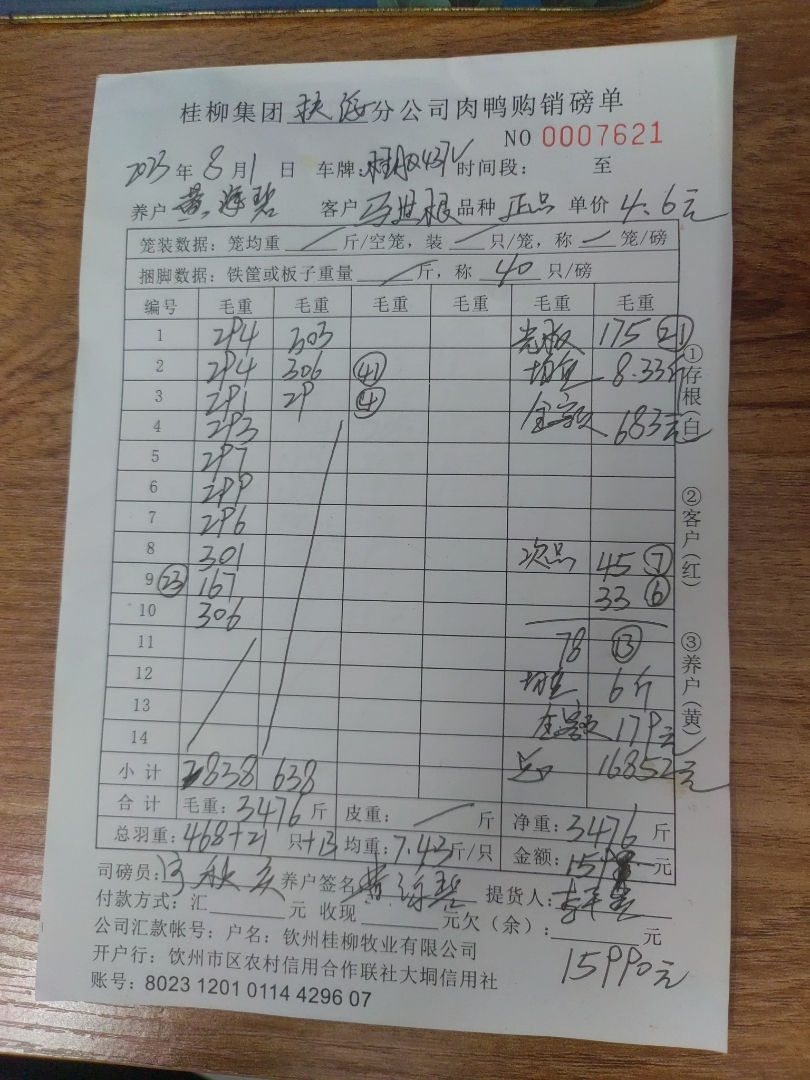 桂柳集团扶海分公司肉鸭购销磅单
NO 0007621
2023年8月1日 车牌: 时间段: 至
养户 黄海碧 客户 马世根 品种 正品 单价 4.6元
笼装数据：笼均重 / 斤/空笼，装 / 只/笼，称 / 笼/磅
捆脚数据：铁筐或板子重量 / 斤，称 40 只/磅
编号 毛重 毛重 毛重 毛重 毛重 毛重
1 294 303 光板 175 ㉑
2 294 306 ㊶ 均重 8.33斤
3 291 29 ④ 金额 683元
4 293
5 297
6 299
7 296
8 301 次品 45 ⑦
9 ㉓ 167 33 ⑥
10 306
11 78 ⑬
12 均重 6斤
13 金额 179元
14
小计 2838 638 总 16852元
合计 毛重：3476斤 皮重：/ 斤 净重：3476斤
总羽重：468+21只+13 均重：7.43斤/只 金额： 元
司磅员： 养户签名 黄海碧 提货人：
付款方式：汇 元 收现 元欠（余）： 元
公司汇款帐号：户名：钦州桂柳牧业有限公司
15990元
开户行：钦州市区农村信用合作联社大垌信用社
账号：8023 1201 0114 4296 07
①存根（白）
②客户（红）
③养户（黄）